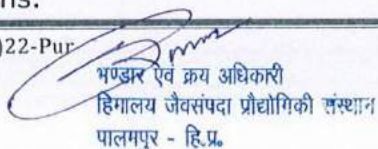 ns.
)22-Pur
भण्डार एवं क्रय अधिकारी
हिमालय जैवसंपदा प्रौद्योगिकी संस्थान
पालमपुर - हि.प्र.